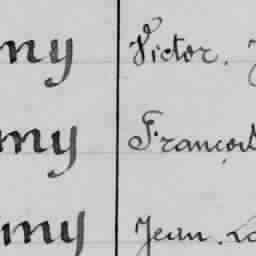 my Victor.
my François
my Jean. Lo